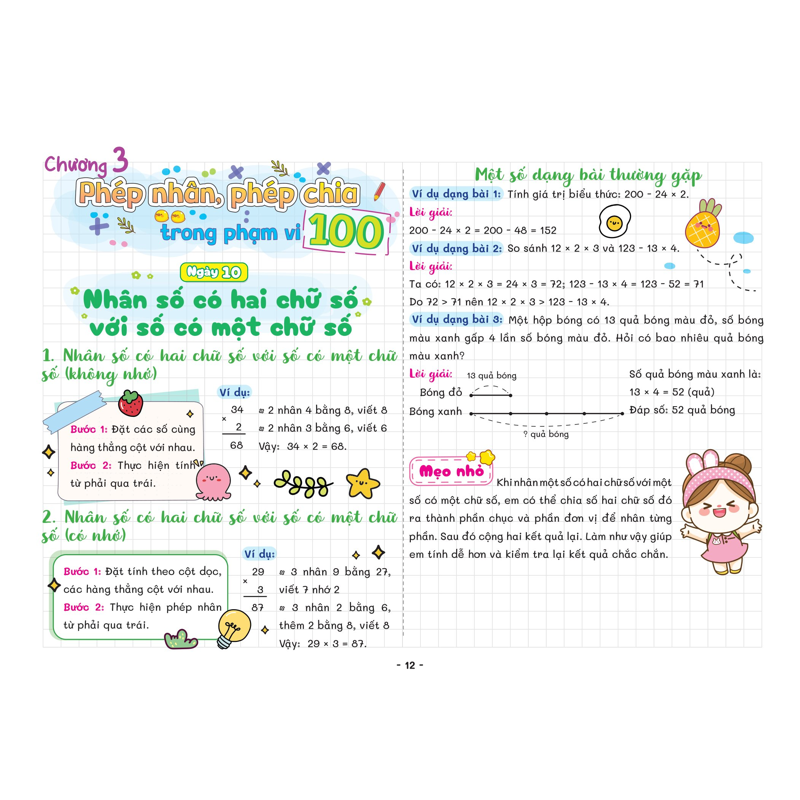 Chương 3
Phép nhân, phép chia
trong phạm vi 100
Ngày 10
Nhân số có hai chữ số
với số có một chữ số
1. Nhân số có hai chữ số với số có một chữ
số (không nhớ)
Bước 1: Đặt các số cùng
hàng thẳng cột với nhau.
Bước 2: Thực hiện tính
từ phải qua trái.
Ví dụ:
34
×
2
68
≈ 2 nhân 4 bằng 8, viết 8
≈ 2 nhân 3 bằng 6, viết 6
Vậy: 34 × 2 = 68.
2. Nhân số có hai chữ số với số có một chữ
số (có nhớ)
Bước 1: Đặt tính theo cột dọc,
các hàng thẳng cột với nhau.
Bước 2: Thực hiện phép nhân
từ phải qua trái.
Ví dụ:
29
×
3
87
≈ 3 nhân 9 bằng 27,
viết 7 nhớ 2
≈ 3 nhân 2 bằng 6,
thêm 2 bằng 8, viết 8
Vậy: 29 × 3 = 87.
Một số dạng bài thường gặp
Ví dụ dạng bài 1: Tính giá trị biểu thức: 200 - 24 × 2.
Lời giải:
200 - 24 × 2 = 200 - 48 = 152
Ví dụ dạng bài 2: So sánh 12 × 2 × 3 và 123 - 13 × 4.
Lời giải:
Ta có: 12 × 2 × 3 = 24 × 3 = 72; 123 - 13 × 4 = 123 - 52 = 71
Do 72 > 71 nên 12 × 2 × 3 > 123 - 13 × 4.
Ví dụ dạng bài 3: Một hộp bóng có 13 quả bóng màu đỏ, số bóng
màu xanh gấp 4 lần số bóng màu đỏ. Hỏi có bao nhiêu quả bóng
màu xanh?
Lời giải:
13 quả bóng
Bóng đỏ
Bóng xanh
? quả bóng
Số quả bóng màu xanh là:
13 × 4 = 52 (quả)
Đáp số: 52 quả bóng
Mẹo nhỏ
Khi nhân một số có hai chữ số với một
số có một chữ số, em có thể chia số hai chữ số đó
ra thành phần chục và phần đơn vị để nhân từng
phần. Sau đó cộng hai kết quả lại. Làm như vậy giúp
em tính dễ hơn và kiểm tra lại kết quả chắc chắn.
- 12 -